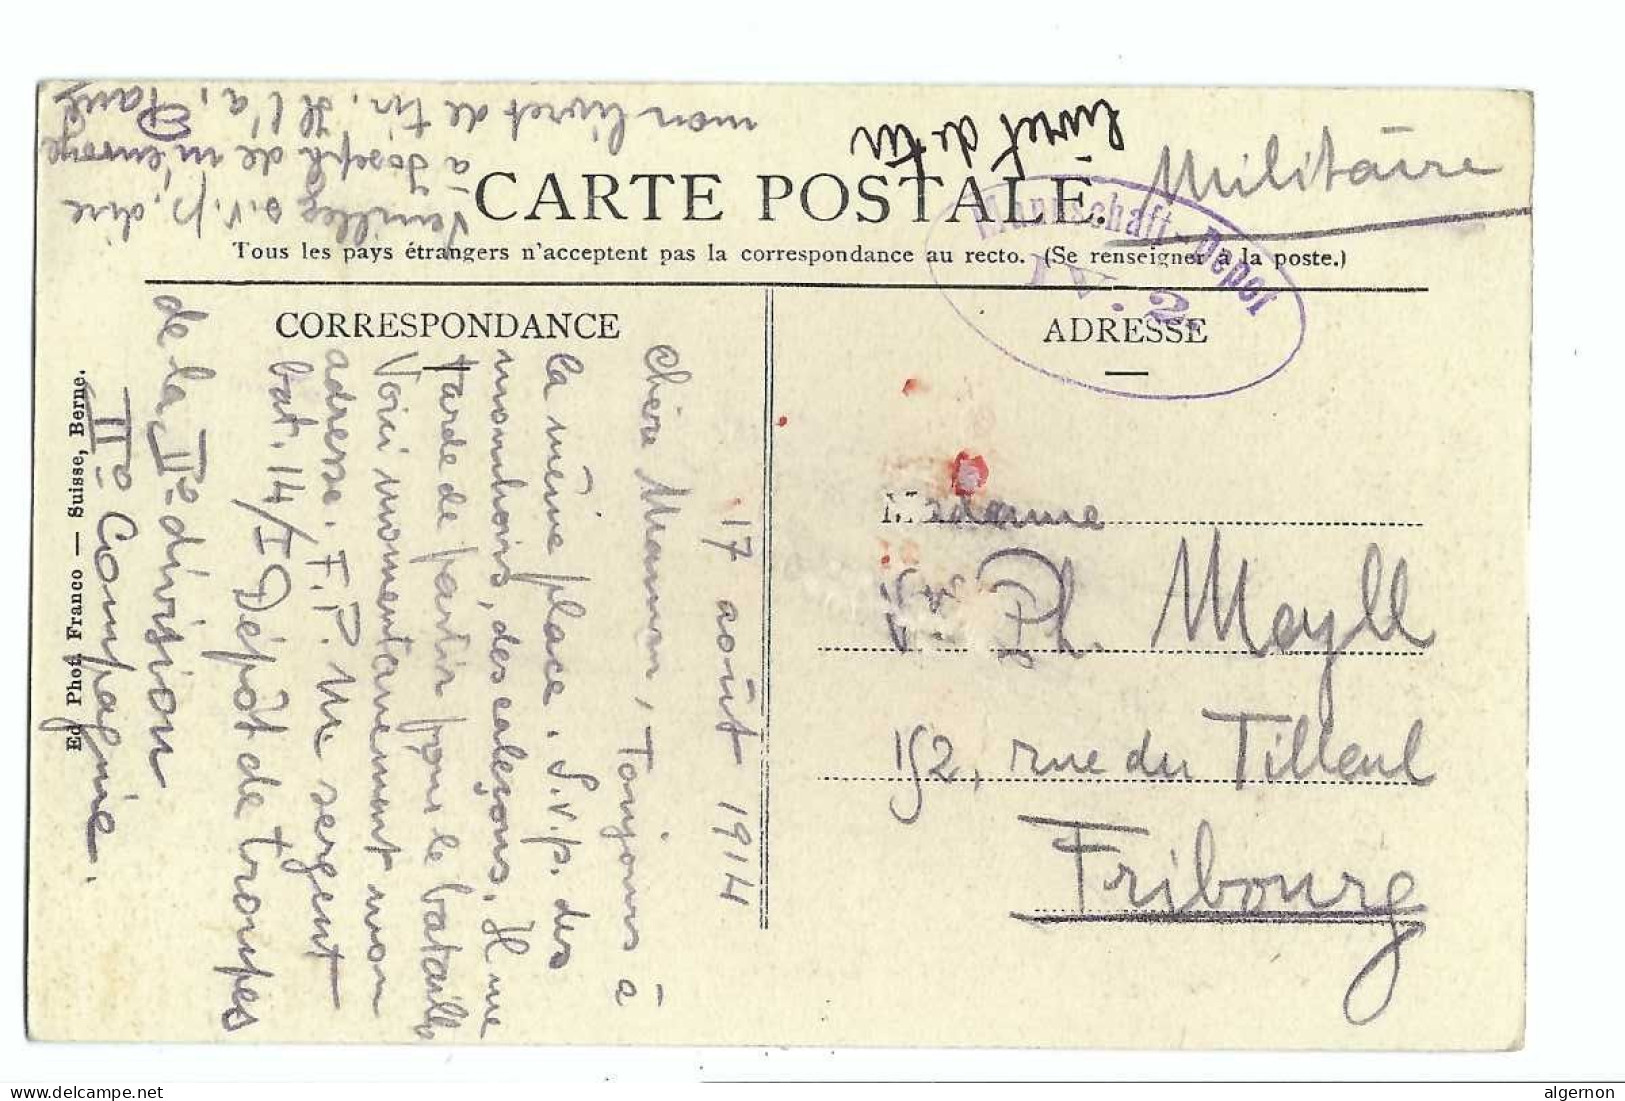 Militaire
livret de tir
CARTE POSTALE.
Tous les pays étrangers n'acceptent pas la correspondance au recto. (Se renseigner à la poste.)
Mannschaft-Depot
IV. 2.
CORRESPONDANCE
ADRESSE
17 août 1914
Chère Maman, Toujours à
la même place. S.v.p. des
mouchoirs, des caleçons. Il me
tarde de partir pour le bataillon
Voici momentanément mon
adresse. F. P. M sergent
bat. 14/I Dépôt de troupes
de la IIe division
IIe Compagnie.
Veuillez s.v.p. dire
à Joseph de m'envoyer
mon livret de tir. Il l'a.
Madame
Ph. Meyll
152, rue du Tilleul
Fribourg
Ed. Phot. Franco — Suisse, Berne.
algernon